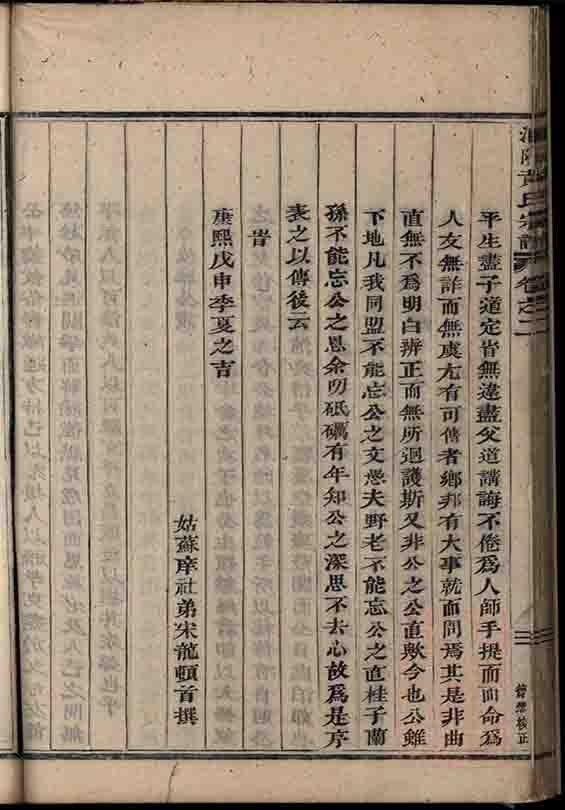 黃氏宗譜 卷之二
平生盡子道定省無違盡父道請誨不倦爲人師手提而面命爲
人友無詐而無虞尤有可傳者鄉邦有大事就而問焉其是非曲
直無不爲明白辨正而無所迴護斯又非公之公直歟今也公雖
下地凡我同盟不能忘公之文愚夫野老不能忘公之直桂子蘭
孫不能忘公之恩余叨砥礪有年知公之深思不去心故爲是序
表之以傳後云
旹
康熙戊申季夏之吉
姑蘇庠社弟宋龍頓首撰
校正